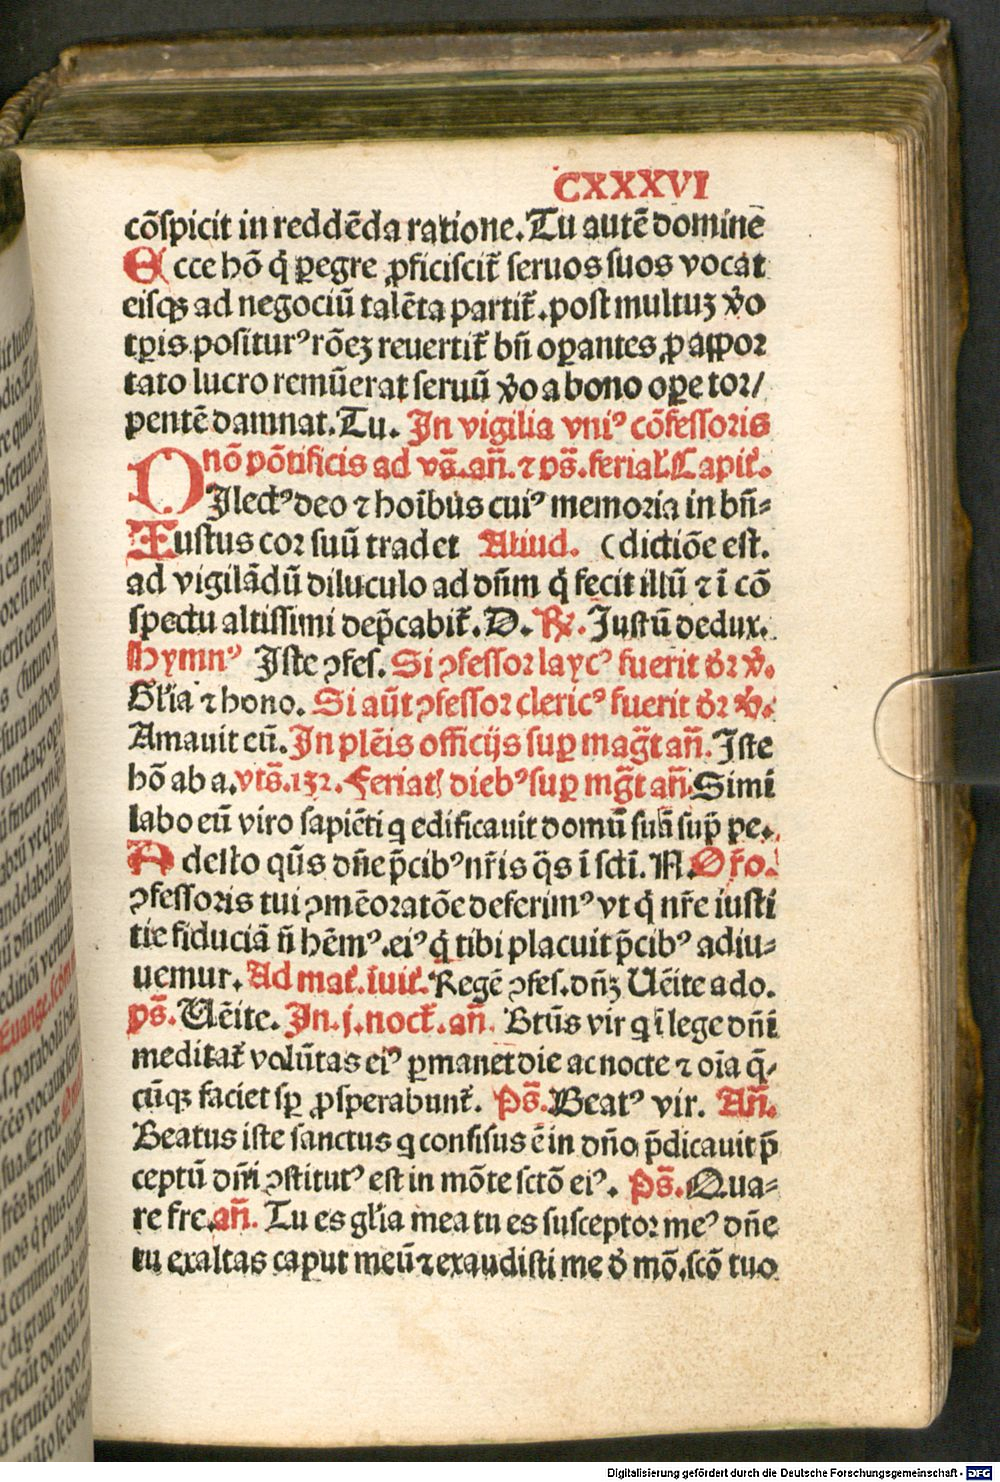 CXXXVI
cōſpicit in reddēda ratione. Tu autē domine
Ecce hō q̇ ꝑegre ꝓficiſcit᷑ ſeruos ſuos vocat
eiſqꝫ ad negociū talēta partit᷑. poſt multuꝫ v̾o
tꝑis poſitur⁹ rōeꝫ reuertit᷑ bn̄ oꝑantes ꝓ appor
tato lucro remūerat ſeruū v̾o a bono oꝑe tor/
pentē damnat. Tu. In vigilia vni⁹ cōfeſſoris
nō pōtificis ad vs̄. an̄. ⁊ ps̄. ferial᷑. Capit᷑.
DIlect⁹ deo ⁊ hoībus cui⁹ memoria in bn̄=
Iuſtus cor ſuū tradet Aliud. (dictiōe eſt.
ad vigilādū diluculo ad dn̄m q̇ fecit illū ⁊ ī cō
ſpectu altiſſimi dep̄cabit᷑. D. ℞. Juſtū dedux.
Hymn⁹ Jſte ꝯfeſ. Si ꝯfeſſor layc⁹ fuerit d̾r v̾.
Gl̾ia ⁊ hono. Si aūt ꝯfeſſor cleric⁹ fuerit d̾r v̾.
Amauit eū. In plēis officijs ſuꝑ maḡt an̄. Jſte
hō ab a. vts̄. 132. Ferial᷑ dieb⁹ ſuꝑ mḡt an̄. Simi
labo eū viro ſapiēti q edificauit domū ſuā ſup̄ pe.
Adeſto qūs dn̄e p̄cib⁹ nr̄is q̄s ī ſctī. N. Or̄o.
ꝯfeſſoris tui ꝯmēoratōe deferim⁹ vt q̇ nr̄e iuſti
tie fiduciā n̄ hēm⁹. ei⁹ q̇ tibi placuit p̄cib⁹ adiu=
uemur. Ad mat᷑. īuit᷑. Regē ꝯfeſ. dn̄ꝫ Uēite ado.
ps̄. Uēite. In .j. noct᷑. an̄. Btūs vir q ī lege dn̄i
meditat᷑ volūtas ei⁹ ꝑmanet die ac nocte ⁊ oīa q̄-
cūqꝫ faciet ſꝑ ꝓſperabunt᷑. Ps̄. Beat⁹ vir. An̄.
Beatus iſte ſanctus q confiſus ē in dn̄o p̄dicauit p̄
ceptū dn̄i ꝯſtitut⁹ eſt in mōte ſctō ei⁹. Ps̄. Qua=
re fre. an̄. Tu es gl̾ia mea tu es ſuſceptor me⁹ dn̄e
tu exaltas caput meū ⁊ exaudiſti me d̾ mō. ſcō tuo
Digitalisierung gefördert durch die Deutsche Forschungsgemeinschaft - DFG